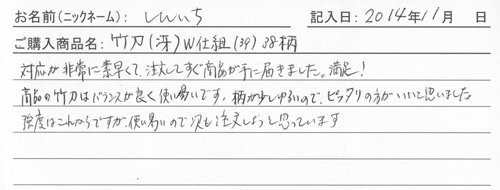 お名前(ニックネーム): しんいち 記入日: 2014年11月 日
ご購入商品名: 竹刀(冴)W仕組(39)38柄
対応が非常に素早くて、注文してすぐ商品が手に届きました。満足!
商品の竹刀はバランスが良く使い易いです。柄が少しゆるいので、ピッタリの方がいいと思いました
強度はこれからですが、使い易いので次も注文しようと思っています